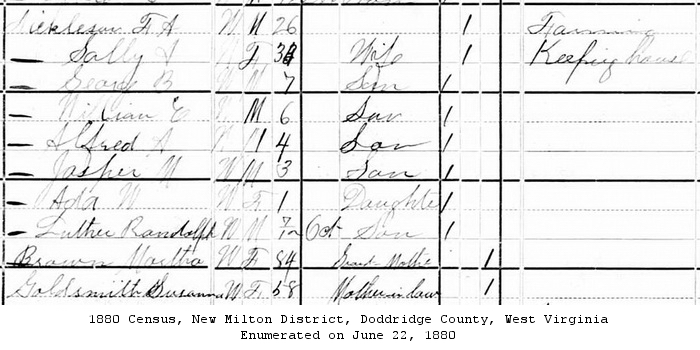 Nickleson F A W M 26 1 Farming
— Sally J W F 34 Wife 1 Keeping house
— George B W M 7 Son 1
— William E W M 6 Son 1
— Alfred A W M 4 Son 1
— Jasper N W M 3 Son 1
— Ada W W F 1 Daughter 1
— Luther Randolph W M 7/12 Oct Son 1
Brown Martha W F 84 Grand Mothe 1
Goldsmith Susanna W F 58 Mother in law 1
1880 Census, New Milton District, Doddridge County, West Virginia
Enumerated on June 22, 1880